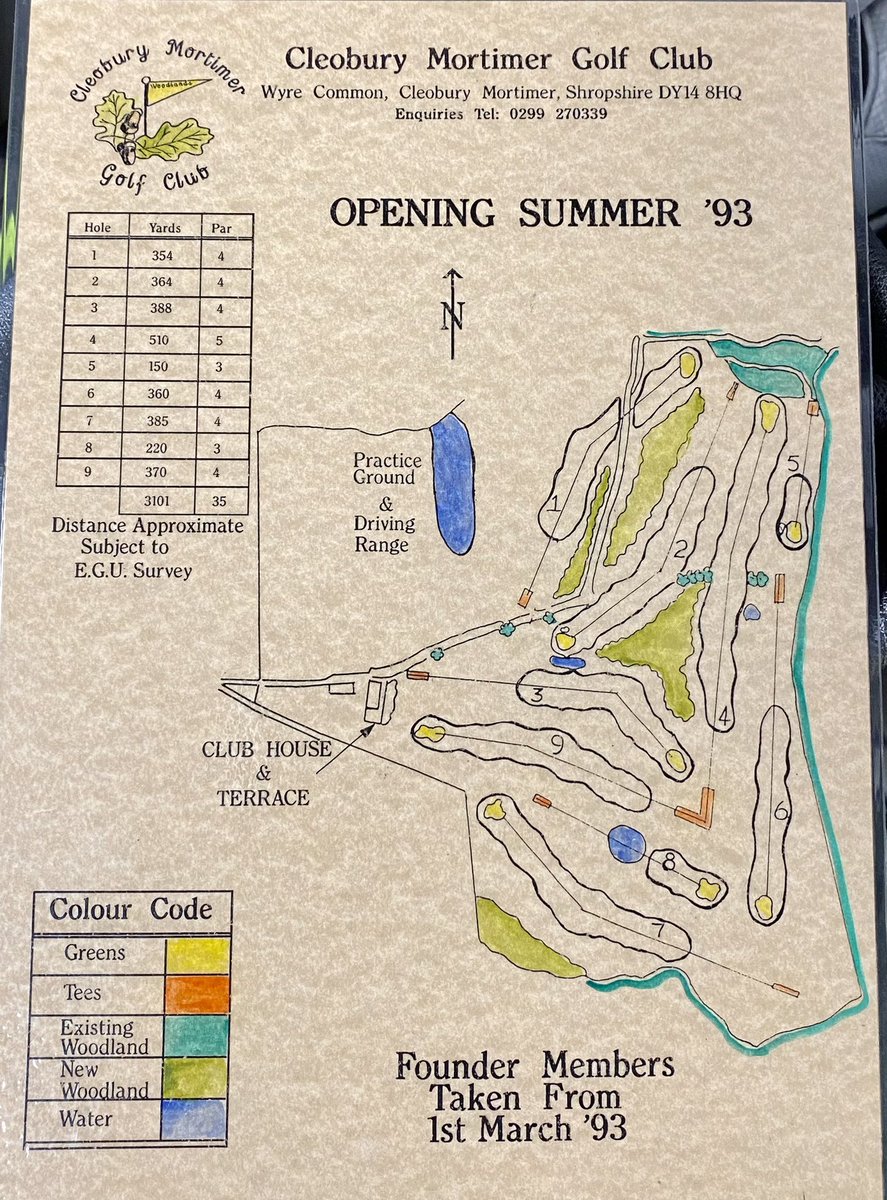 Cleobury Mortimer
Woodlands
Golf Club
Cleobury Mortimer Golf Club
Wyre Common, Cleobury Mortimer, Shropshire DY14 8HQ
Enquiries Tel: 0299 270339
OPENING SUMMER '93
Hole Yards Par
1 354 4
2 364 4
3 388 4
4 510 5
5 150 3
6 360 4
7 385 4
8 220 3
9 370 4
3101 35
Distance Approximate
Subject to
E.G.U. Survey
N
Practice
Ground
&
Driving
Range
1
2
5
3
4
9
6
8
7
CLUB HOUSE
&
TERRACE
Colour Code
Greens
Tees
Existing
Woodland
New
Woodland
Water
Founder Members
Taken From
1st March '93